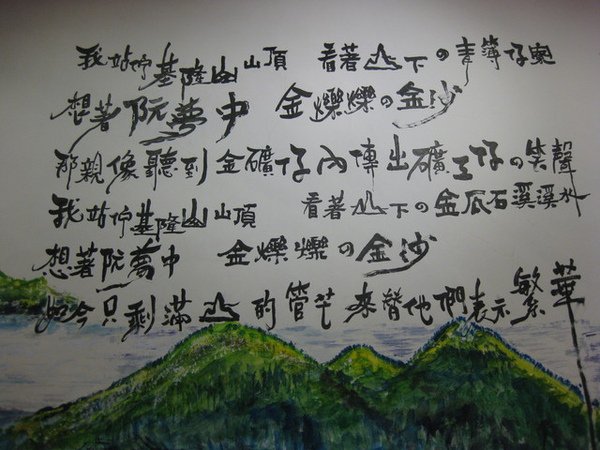 我站佇基隆山山頂 看著山下の青簿仔寮
想著阮夢中 金爍爍の金沙
那親像聽到金礦仔內傳出礦工仔の笑聲
我站佇基隆山山頂 看著山下の金瓜石溪溪水
想著阮夢中 金爍爍の金沙
如今只剩滿山的管芒來替他們表示繁華